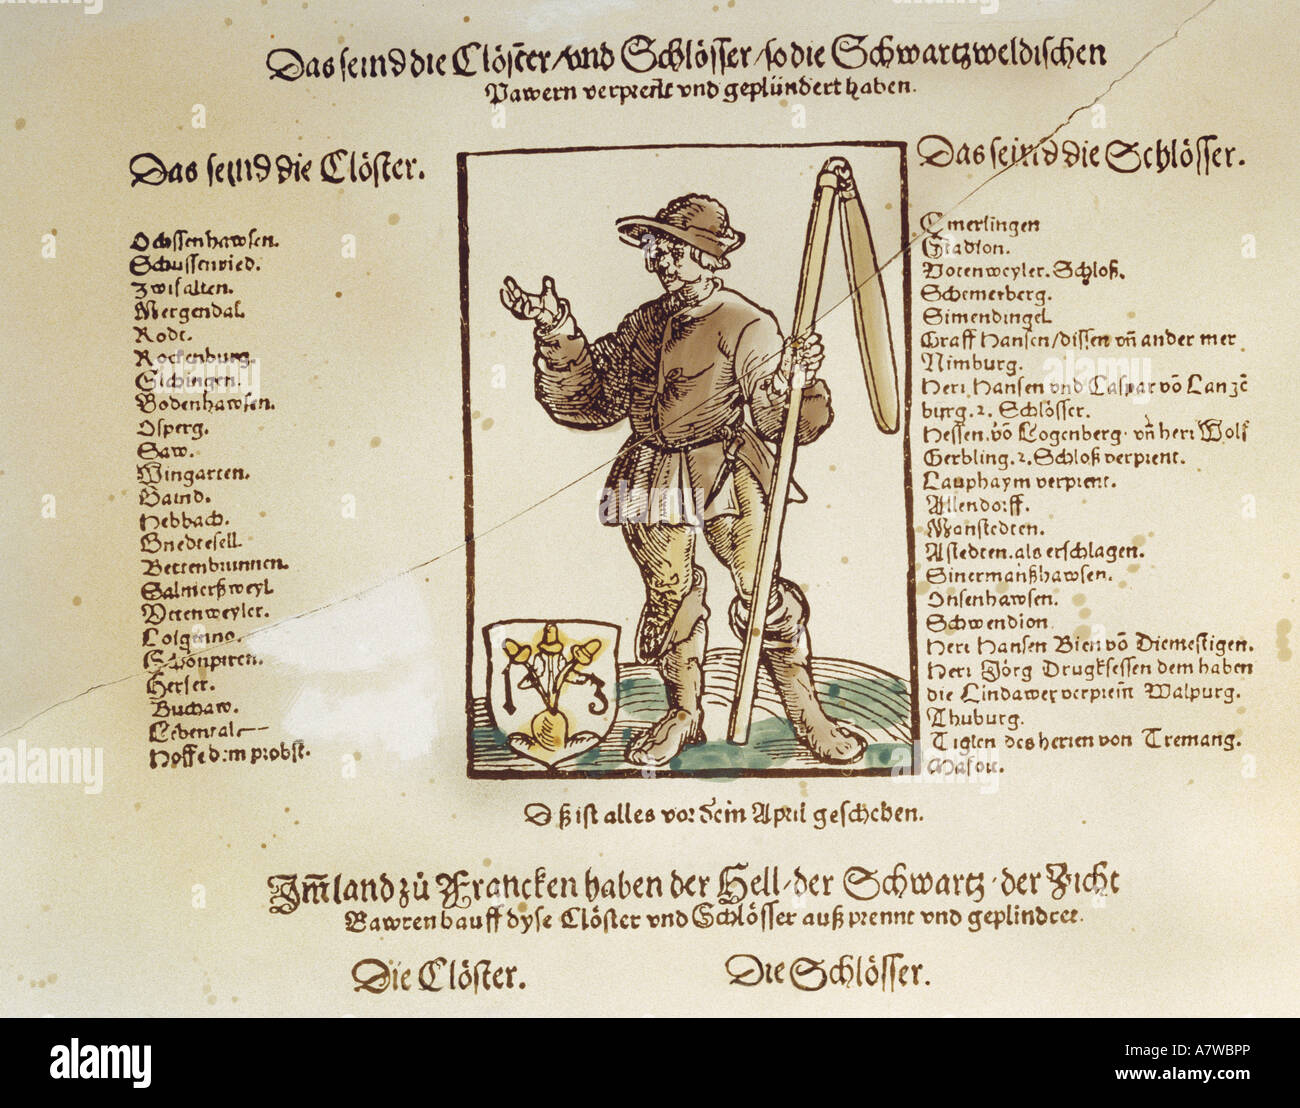 Das seind die Clöster/vnd Schlösser/so die Schwartzweldischen
Pawern verprent vnd geplündert haben.
Das seind die Clöster.
Ochssenhawsen.
Schussenried.
Zwifalten.
Mergendal
Rodt.
Rockenburg.
Elchingen.
Bodenhawsen.
Osperg.
Saw.
Wingarten.
Baind.
Hebbach.
Gnedtesell
Bettenbrunnen.
Salmerßweyl
Vttenweyler.
Schonpiren.
Herser.
Buchaw.
Lebental
Hoffe d:m probst.
Das seind die Schlösser.
Emerlingen
Stadion.
Votenweyler. Schloß.
Schemerberg.
Simendingel
Graff Hansen/dissen vñ ander mer
Nimburg.
Herr Hansen vnd Caspar võ Lanzc
burg. 2. Schlösser.
Hessen. võ Logenberg. vñ herr Wolf
Gerbling. 2. Schloß verprent.
Lauphaym verprent.
Allendorff.
Manstedten.
Astedten. als erschlagen.
Sinermanßhawsen.
Onsenhawsen.
Schwendion
Herr Hansen Bien võ Diemestigen.
Herr Jörg Drugksessen dem haben
die Lindawer verprent Walpurg.
Thuburg.
Tiglen des herren von Tremang.
Masou.
1 3
Dß ist alles vor dem April geschehen.
Im land zů Francken haben der Hell/der Schwartz/der Licht
Bawren hauff dyse Clöster vnd Schlösser auß prennt vnd geplindret
Die Clöster.
Die Schlösser.
alamy
alamy
Image ID: A7WBPP
www.alamy.com